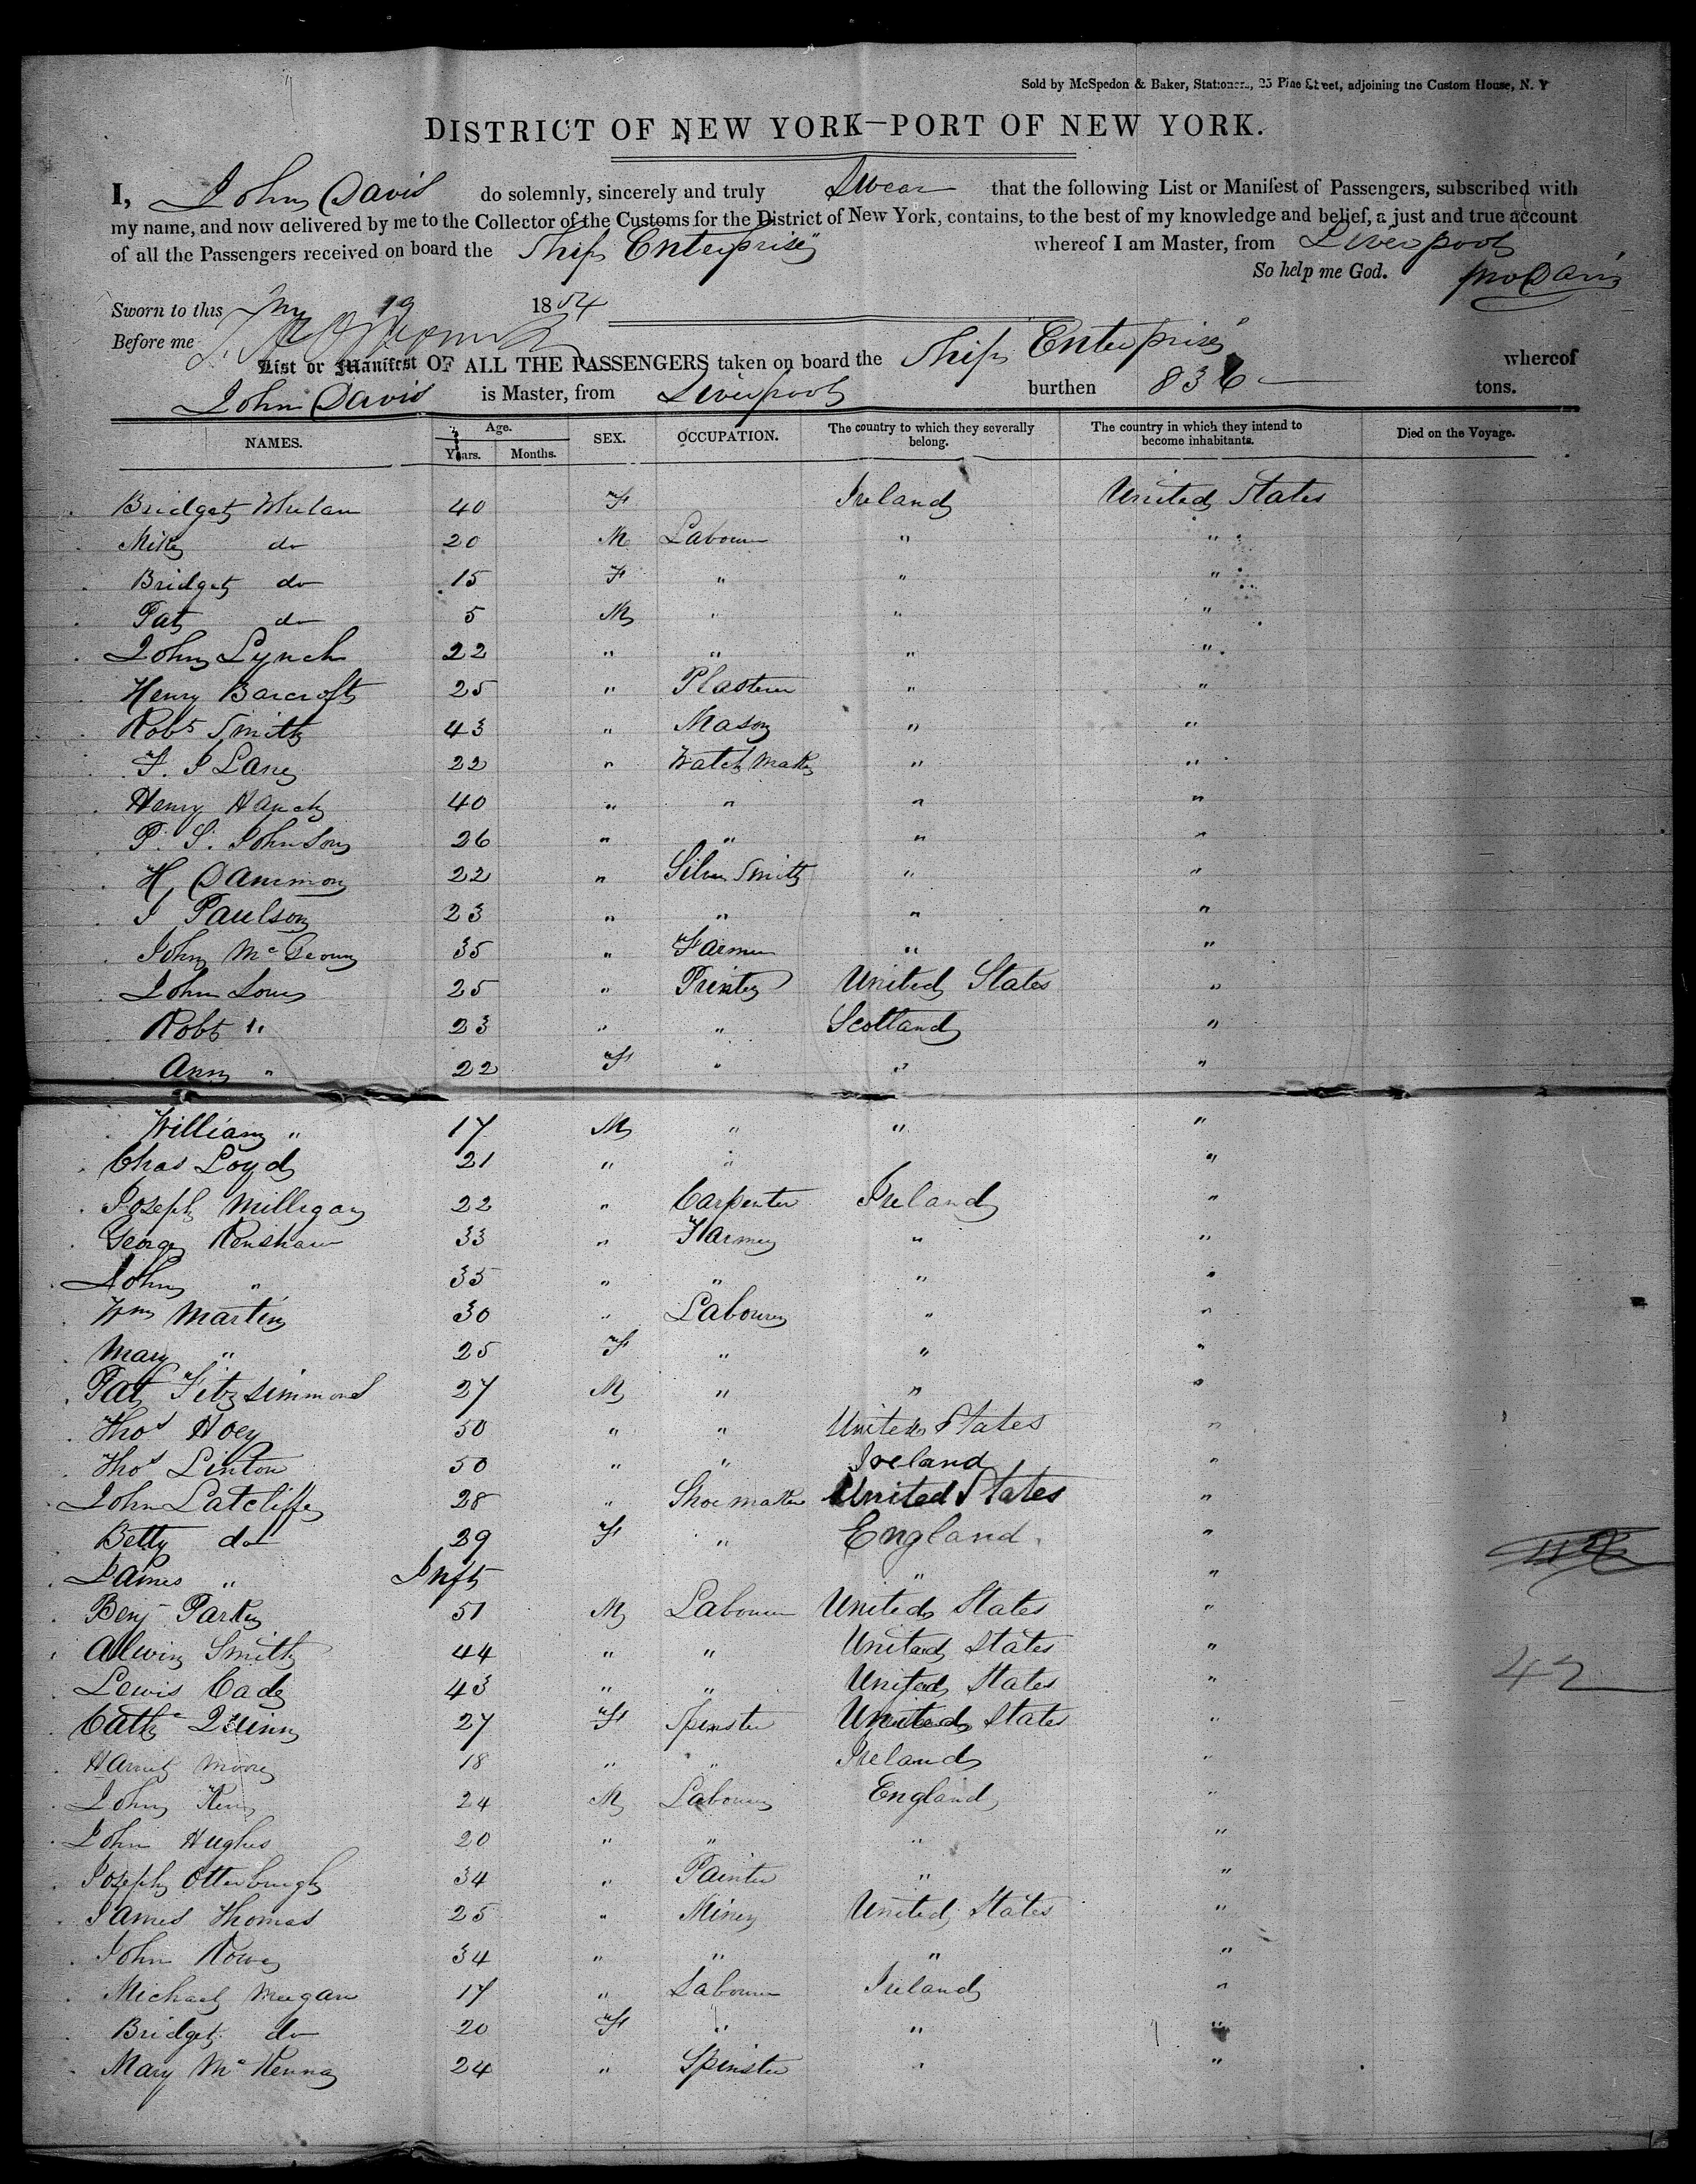 Sold by McSpedon & Baker, Stationers, 25 Pine Street, adjoining the Custom House, N. Y
DISTRICT OF NEW YORK—PORT OF NEW YORK.
I, John Davis do solemnly, sincerely and truly Swear that the following List or Manifest of Passengers, subscribed with
my name, and now delivered by me to the Collector of the Customs for the District of New York, contains, to the best of my knowledge and belief, a just and true account
of all the Passengers received on board the Ship "Enterprise" whereof I am Master, from Liverpool
So help me God. Jno Davis
Sworn to this 19 1854
Before me
List or Manifest OF ALL THE PASSENGERS taken on board the Ship Enterprise whereof
John Davis is Master, from Liverpool burthen 836 tons.
NAMES. Age. Years. Months. SEX. OCCUPATION. The country to which they severally belong. The country in which they intend to become inhabitants. Died on the Voyage.
Bridget Whelan 40 F Ireland United States
Mike do 20 M Labourer " "
Bridget do 15 F " " "
Pat do 5 M " " "
John Lynch 22 " " " "
Henry Barcroft 25 " Plasterer " "
Robt Smith 43 " Mason " "
F. J Lane 22 " Watch Maker " "
Henry 40 " " " "
P. S. Johnson 26 " " " "
H, Dammon 22 " Silver Smith " "
J Paulson 23 " " " "
John Mc 35 " Farmer " "
John 25 " Printer United States "
Robt " 23 " " Scotland "
Ann " 22 F " " "
William " 17 M " " "
Chas Loyd 21 " " "
Joseph Milligan 22 " Carpenter Ireland "
George Renshaw 33 " Farmer " "
John " 35 " " " "
Wm Martin 30 " Labourer " "
Mary " 25 F " " "
Pat Fitzsimmons 27 M " " "
Thos Hoey 50 " " United States "
Thos Linton 50 " " Ireland "
John Latcliffe 28 " Shoe maker United States "
Betty do 29 F " England "
James " Inft " "
Benj Parker 51 M Labourer United States "
Alwin Smith 44 " " United States "
Lewis Cade 43 " " United States "
42
Cathe Quinn 27 F Spinster United States "
Harriet Moore 18 " " Ireland "
John 24 M Labourer England "
John Hughes 20 " " " "
Joseph Otterburgh 34 " Painter " "
James Thomas 25 " Miner United States "
John Rowe 34 " " " "
Michael Meegan 17 " Labourer Ireland "
Bridget do 20 F " " "
Mary McKenna 24 " Spinster " "